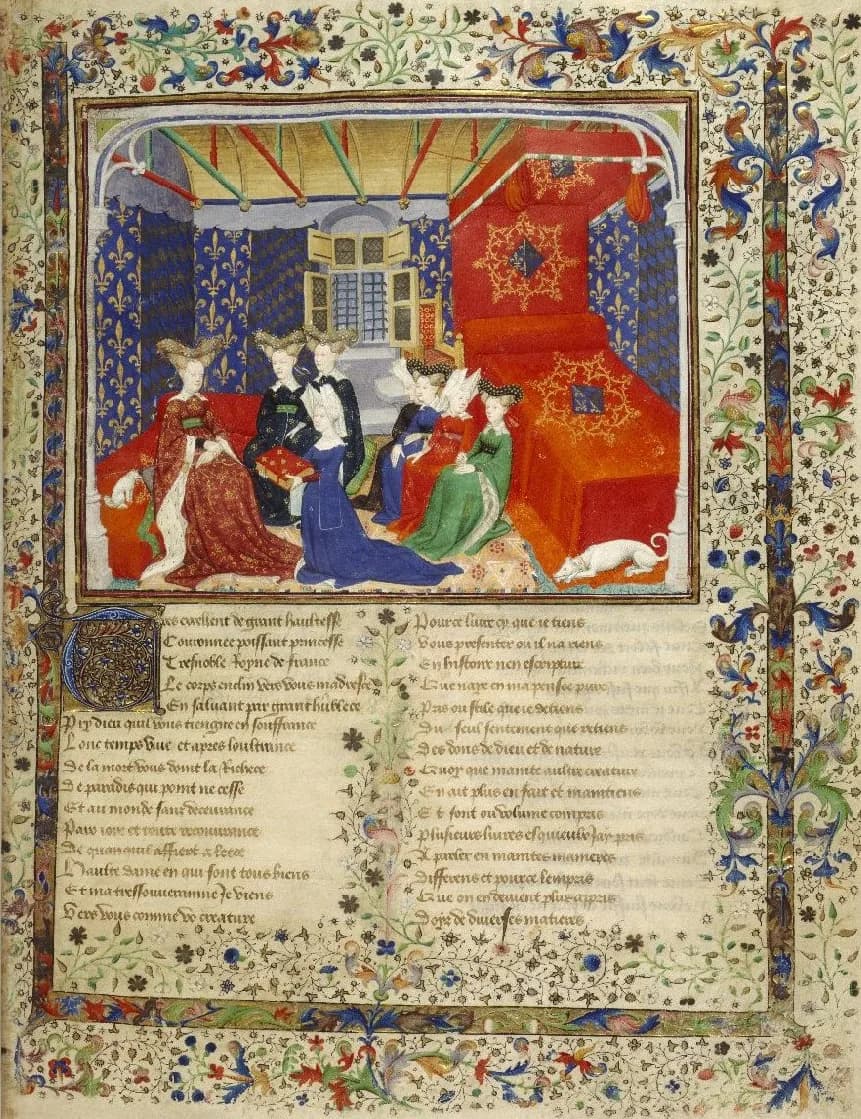 Tres excellent de grant haultesse
Couronnee poissant princesse
Tresnoble Royne de france
Le corps enclin vers vous madresce
En saluant par grant humblece
Pry dieu quil vous tiengne en souffrance
Lonc temps vive et apres loultrance
De la mort vous doint la Richece
De paradis qui point ne cesse
Et au monde sans decevrance
Paix ioye et toute recouvrance
De quanquil affiert a leece
Haulte dame en qui sont tous biens
Et ma tressouverainne Je viens
Vers vous comme vo creature
Pour ce livre cy que ie tiens
Vous presenter ou il na riens
En histoire nen escripture
Que naye en ma pensee pure
Pris ou stile que ie detiens
Du seul sentement que retiens
Des dons de dieu et de nature
Quoy que mainte aultre creature
En ait plus en fait et maintiens
Et sont ou volume compris
Plusieurs livres esquieulx Jay pris
A parler en maintes manieres
Differens et pource lempris
Que on en devient plus apris
Doyr de diverses matieres